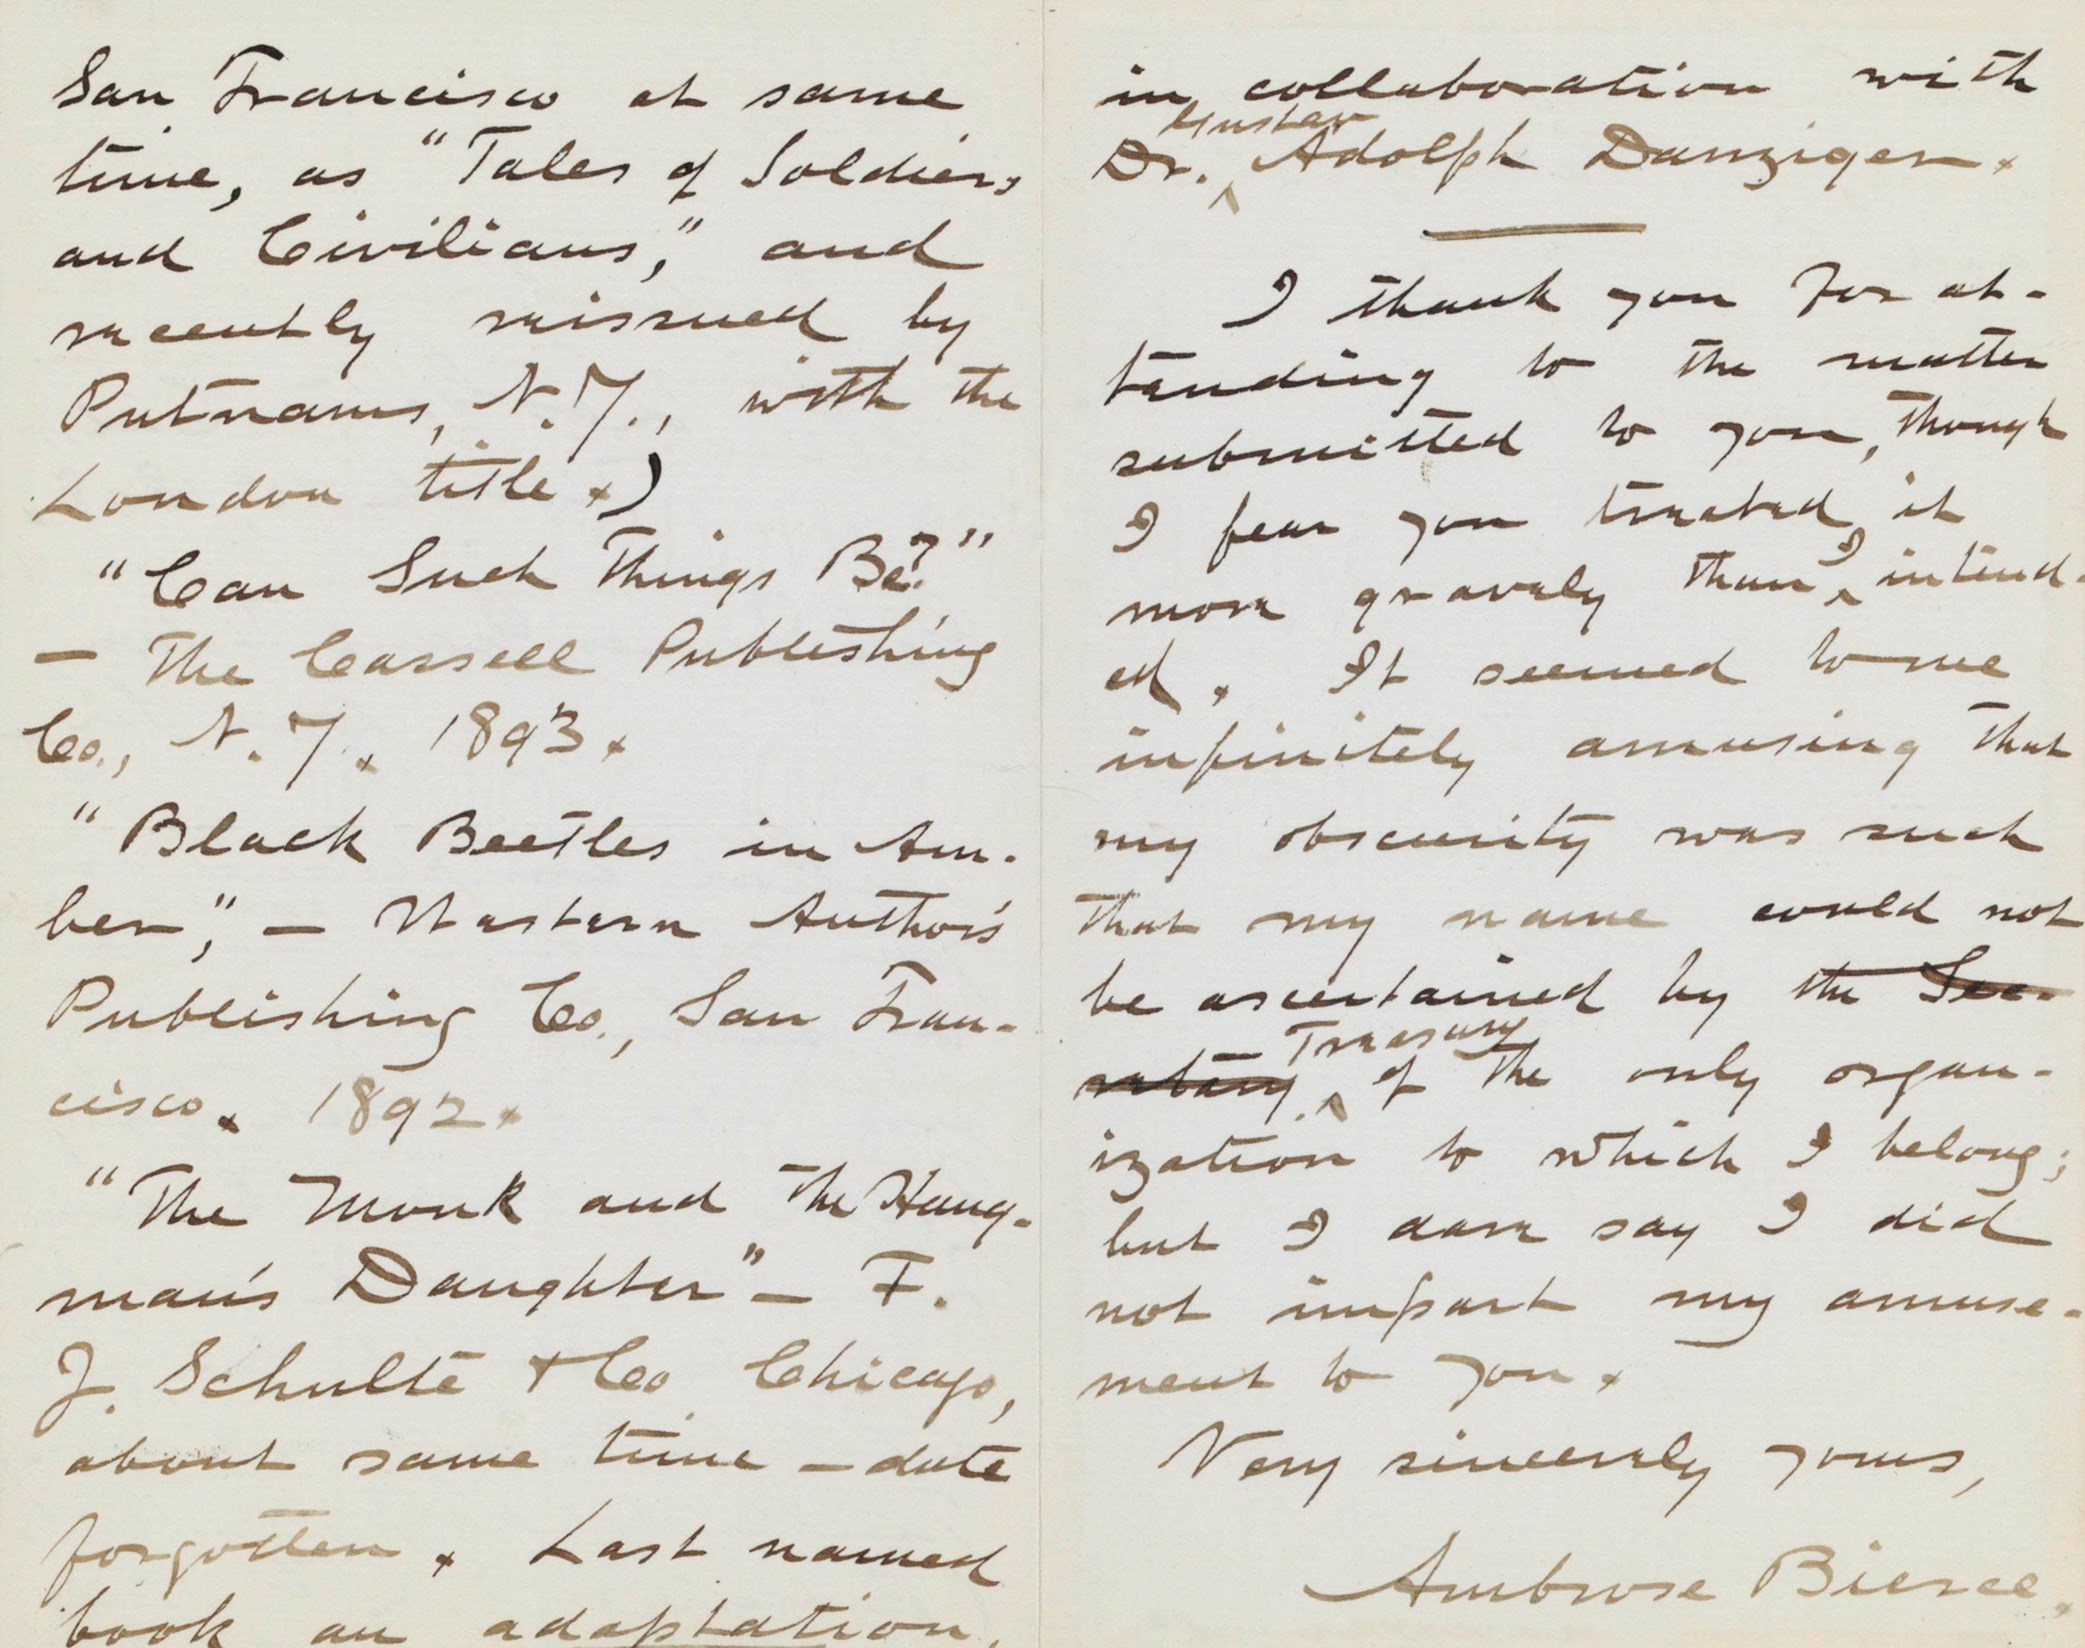 San Francisco at same
time, as "Tales of Soldiers
and Civilians," and
recently reissued by
Putnams, N.Y., with the
London title.)
"Can Such Things Be?"
— The Cassell Publishing
Co., N.Y. 1893.
"Black Beetles in Am-
ber," — Western Author's
Publishing Co., San Fran-
cisco. 1892.
"The Monk and the Hang-
man's Daughter" — F.
J. Schulte & Co Chicago,
about same time — date
forgotten. Last named
book an adaptation,
in collaboration with
Gustav
Dr. ^ Adolph Danziger.
I thank you for at-
tending to the matter
submitted to you, though
I fear you treated it
more gravely than ^I intend-
ed. It seemed to me
infinitely amusing that
my obscurity was such
that my name could not
be ascertained by the Sec-
Treasury
retary ^ of the only organ-
ization to which I belong;
but I dare say I did
not impart my amuse-
ment to you.
Very sincerely yours,
Ambrose Bierce.